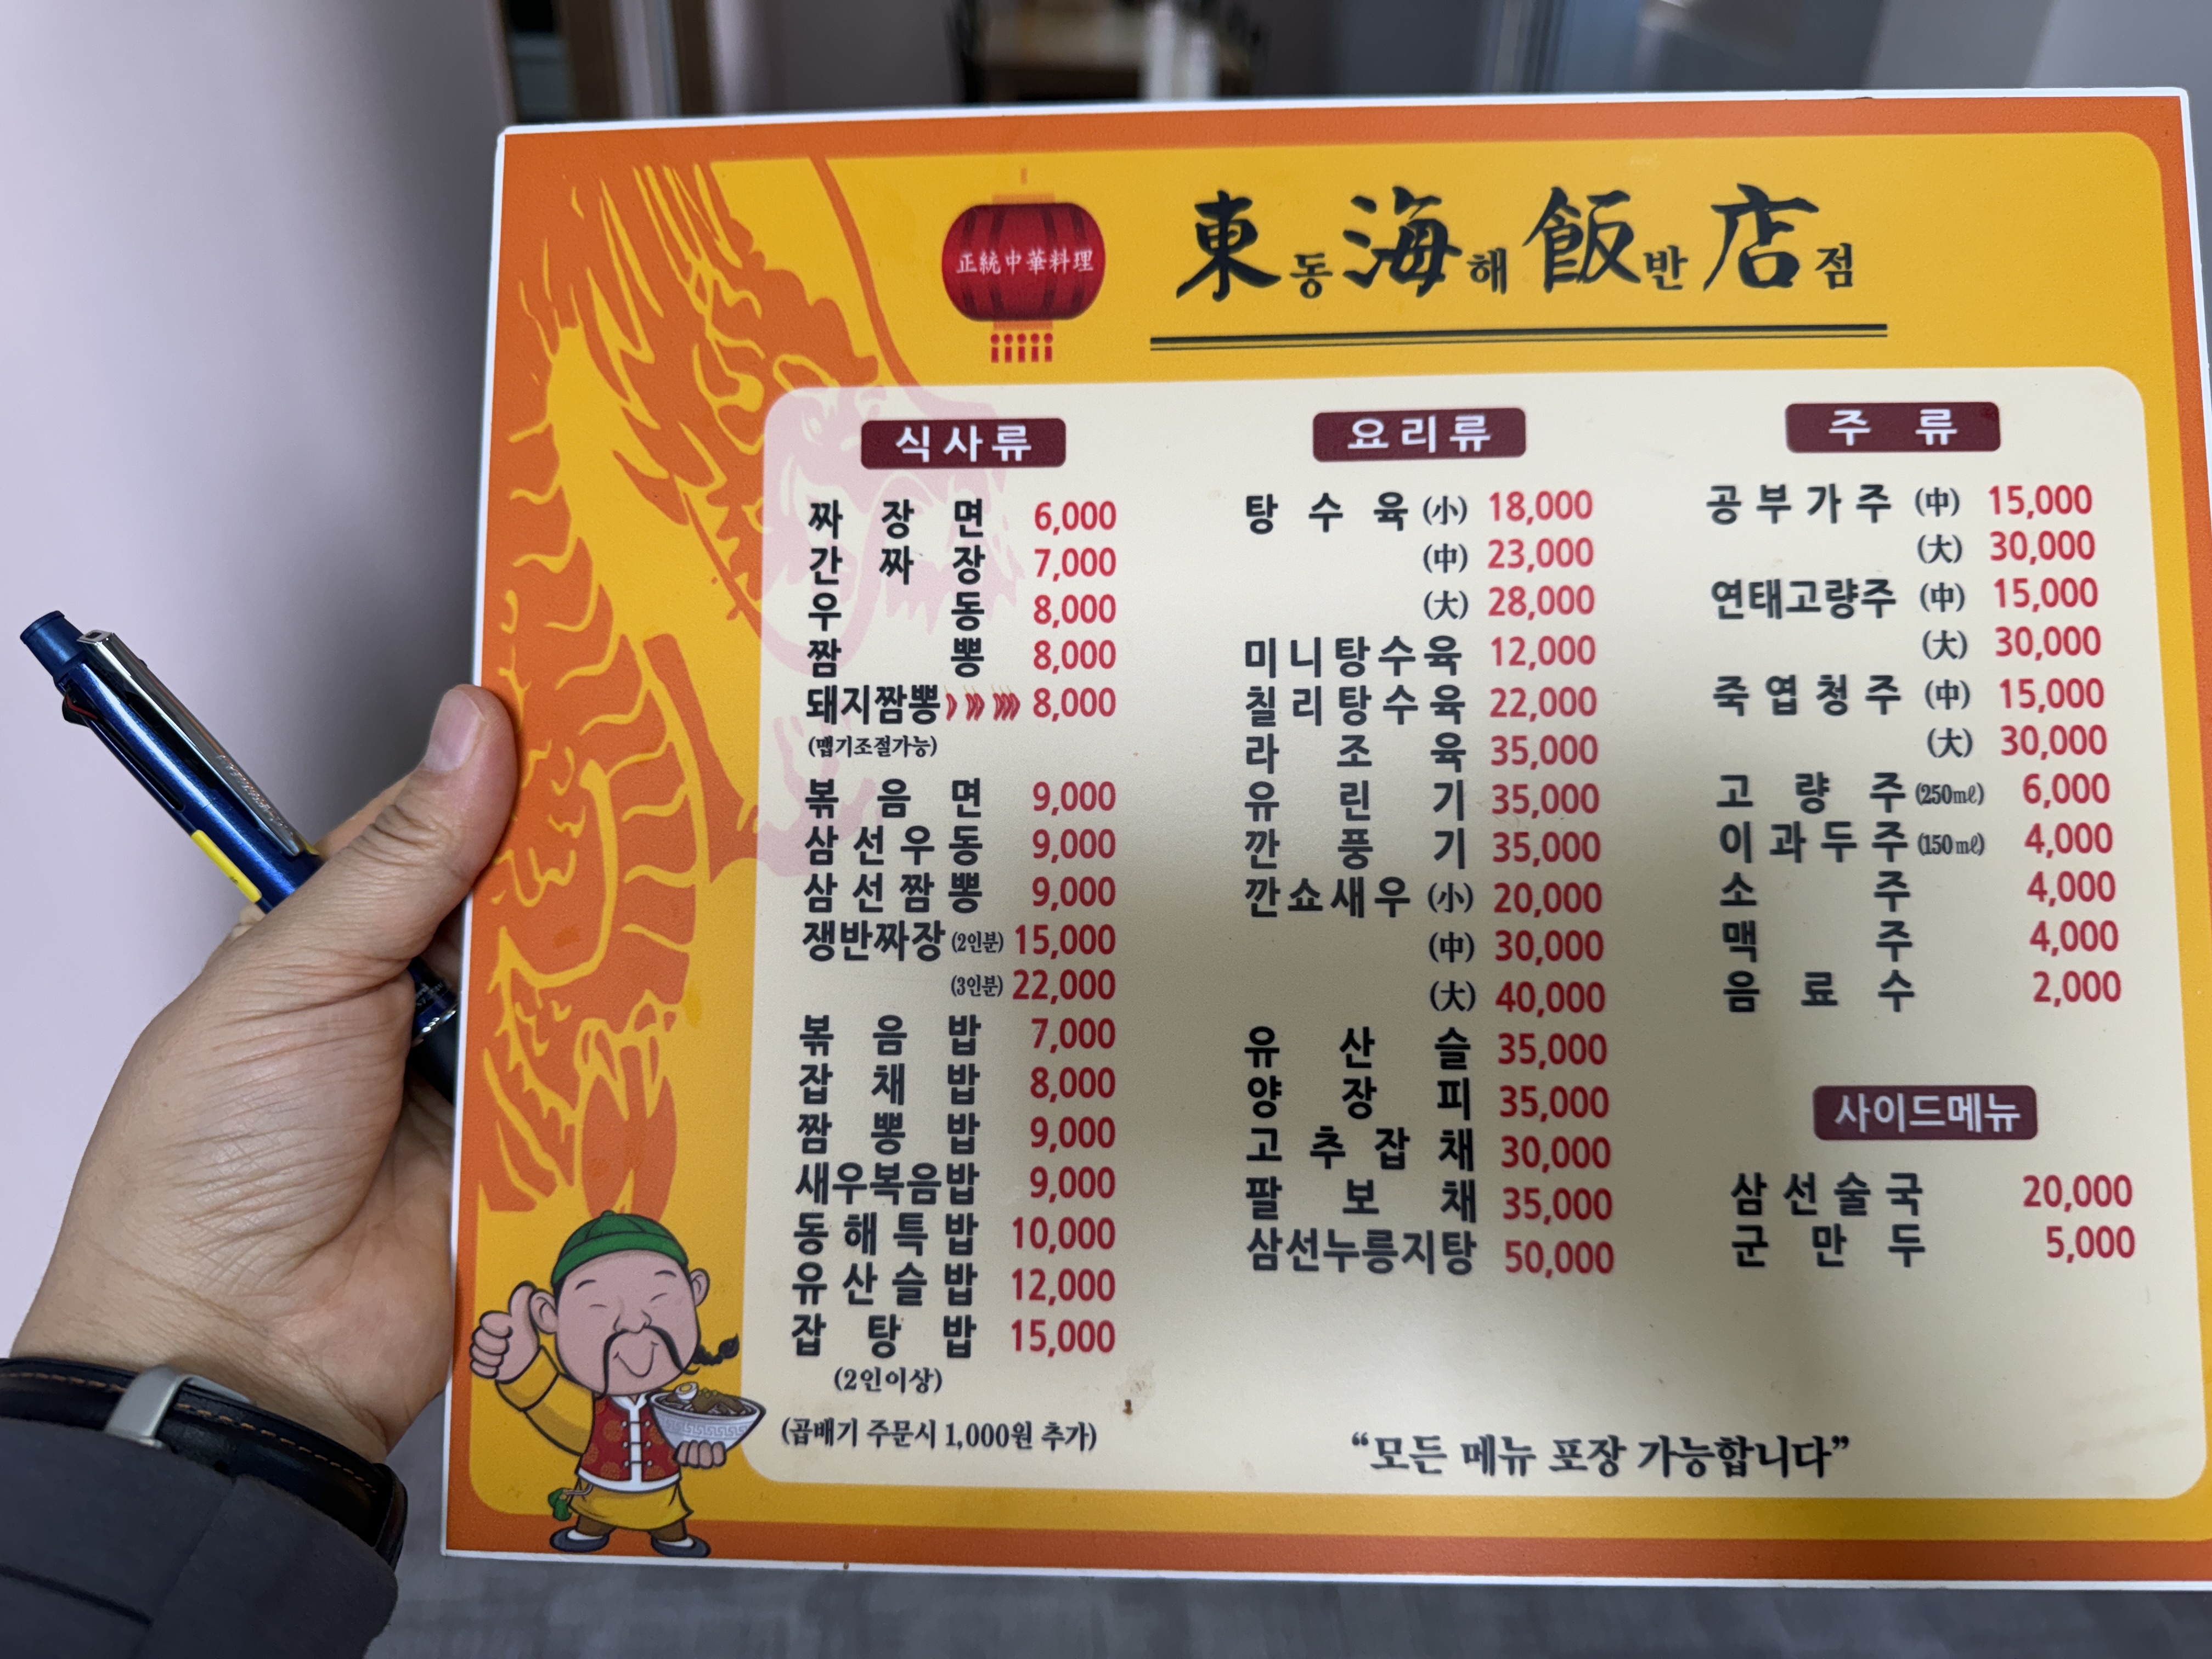 正統中華料理
東동海해飯반店점
식사류
짜장면 6,000
간짜장 7,000
우동 8,000
짬뽕 8,000
돼지짬뽕 8,000
(맵기조절가능)
볶음면 9,000
삼선우동 9,000
삼선짬뽕 9,000
쟁반짜장 (2인분) 15,000
(3인분) 22,000
볶음밥 7,000
잡채밥 8,000
짬뽕밥 9,000
새우복음밥 9,000
동해특밥 10,000
유산슬밥 12,000
잡탕밥 15,000
(2인이상)
(곱배기 주문시 1,000원 추가)
요리류
탕수육 (小) 18,000
(中) 23,000
(大) 28,000
미니탕수육 12,000
칠리탕수육 22,000
라조육 35,000
유린기 35,000
깐풍기 35,000
깐쇼새우 (小) 20,000
(中) 30,000
(大) 40,000
유산슬 35,000
양장피 35,000
고추잡채 30,000
팔보채 35,000
삼선누릉지탕 50,000
주류
공부가주 (中) 15,000
(大) 30,000
연태고량주 (中) 15,000
(大) 30,000
죽엽청주 (中) 15,000
(大) 30,000
고량주 (250㎖) 6,000
이과두주 (150㎖) 4,000
소주 4,000
맥주 4,000
음료수 2,000
사이드메뉴
삼선술국 20,000
군만두 5,000
“모든 메뉴 포장 가능합니다”